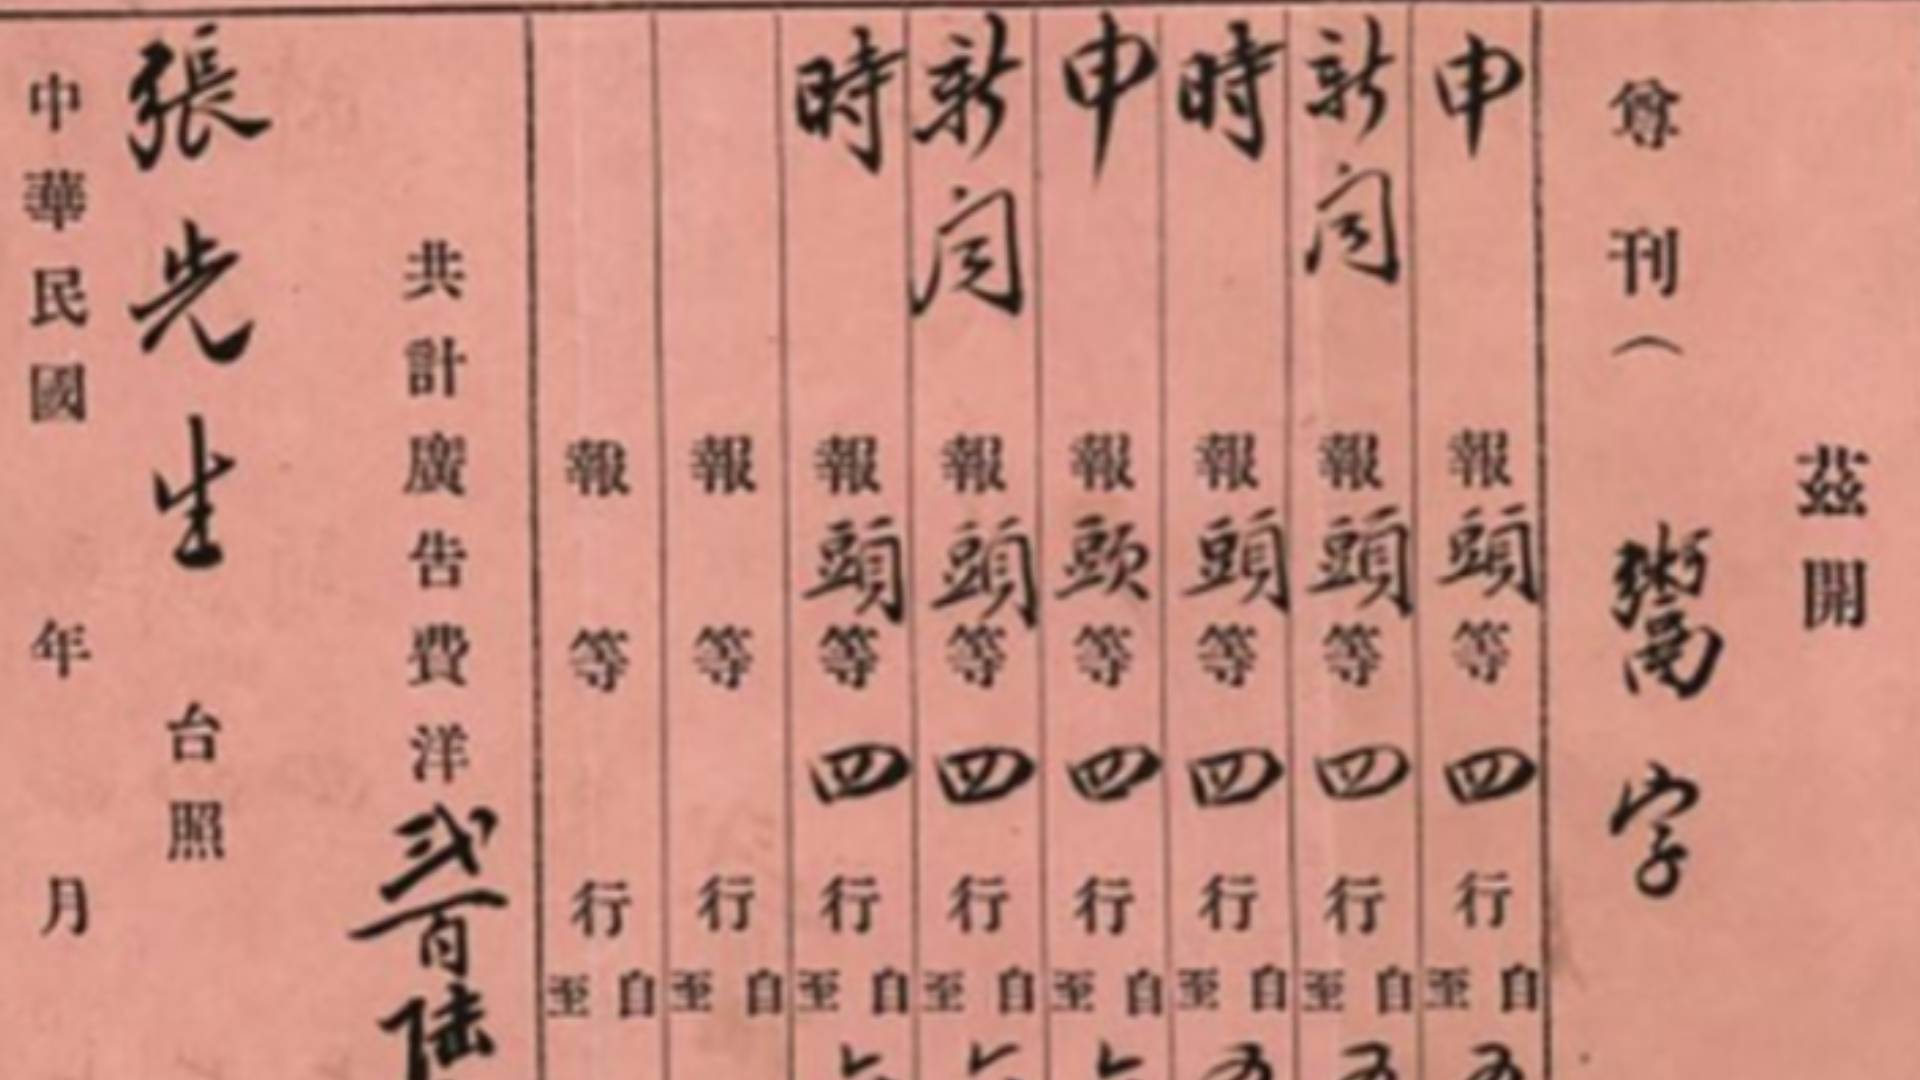 茲開
尊刊（鬻字
申報頭等四行自至五
新闻報頭等四行自至五
時報頭等四行自至五
申報頭等四行自至
新闻報頭等四行自至
時報頭等四行自至
報等行自至
報等行自至
共計廣告費洋弍百陸
張先生台照
中華民國年月